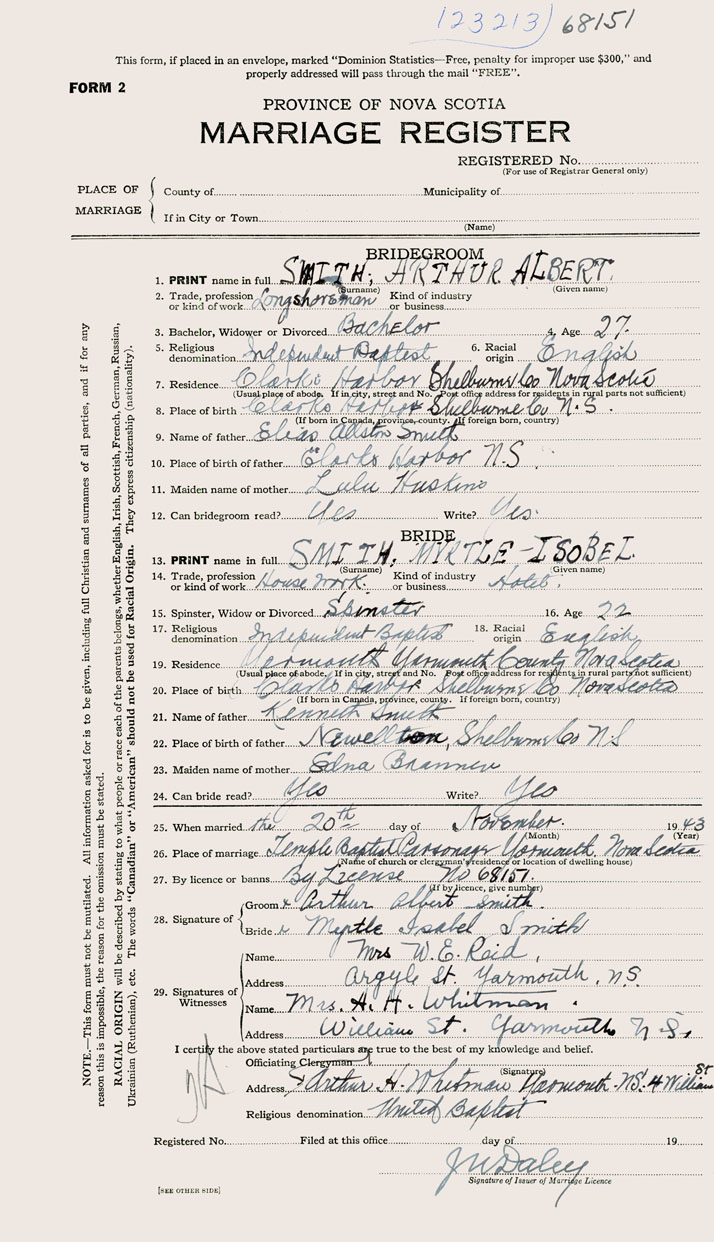 123213) 68151
This form, if placed in an envelope, marked "Dominion Statistics—Free, penalty for improper use $300," and
properly addressed will pass through the mail "FREE".
FORM 2
PROVINCE OF NOVA SCOTIA
MARRIAGE REGISTER
REGISTERED No.
(For use of Registrar General only)
PLACE OF MARRIAGE
County of Municipality of
If in City or Town
(Name)
BRIDEGROOM
1. PRINT name in full SMITH, ARTHUR ALBERT.
(Surname) (Given name)
2. Trade, profession or kind of work Longshoreman Kind of industry or business
3. Bachelor, Widower or Divorced Bachelor 4. Age 27.
5. Religious denomination Independent Baptist 6. Racial origin English
7. Residence Clarks Harbor Shelburne Co Nova Scotia
(Usual place of abode. If in city, street and No. Post office address for residents in rural parts not sufficient)
8. Place of birth Clarks Harbor Shelburne Co N.S.
(If born in Canada, province, county. If foreign born, country)
9. Name of father Elias Allston Smith
10. Place of birth of father Clarks Harbor N.S.
11. Maiden name of mother Lulu Huskins
12. Can bridegroom read? Yes Write? Yes.
BRIDE
13. PRINT name in full SMITH, MYRTLE-ISOBEL.
(Surname) (Given name)
14. Trade, profession or kind of work House Work. Kind of industry or business Hotel.
15. Spinster, Widow or Divorced Spinster 16. Age 22
17. Religious denomination Independent Baptist 18. Racial origin English
19. Residence Yarmouth Yarmouth County Nova Scotia
(Usual place of abode. If in city, street and No. Post office address for residents in rural parts not sufficient)
20. Place of birth Clarks Harbor Shelburne Co Nova Scotia
(If born in Canada, province, county. If foreign born, country)
21. Name of father Kenneth Smith
22. Place of birth of father Newellton, Shelburne Co N.S
23. Maiden name of mother Edna Brannen
24. Can bride read? Yes Write? Yes
25. When married the 20th day of November. 1943
(Month) (Year)
26. Place of marriage Temple Baptist Parsonage Yarmouth, Nova Scotia
(Name of church or clergyman's residence or location of dwelling house)
27. By licence or banns By License No 68151.
(If by licence, give number)
28. Signature of
Groom x Arthur Albert Smith.
Bride x Myrtle Isabel Smith
29. Signatures of Witnesses
Name Mrs W.E. Reid,
Address Argyle St. Yarmouth, N.S.
Name Mrs. A. H. Whitman.
Address William St. Yarmouth N.S.
I certify the above stated particulars are true to the best of my knowledge and belief.
Officiating Clergyman
(Signature)
Address Arthur H. Whitman Yarmouth. N.S. 4 William St
Religious denomination United Baptist
Registered No. Filed at this office day of 19
J W Daley
Signature of Issuer of Marriage Licence
[SEE OTHER SIDE]
NOTE.—This form must not be mutilated. All information asked for is to be given, including full Christian and surnames of all parties, and if for any
reason this is impossible, the reason for the omission must be stated.
RACIAL ORIGIN will be described by stating to what people or race each of the parents belongs, whether English, Irish, Scottish, French, German, Russian,
Ukrainian (Ruthenian), etc. The words "Canadian" or "American" should not be used for Racial Origin. They express citizenship (nationality).